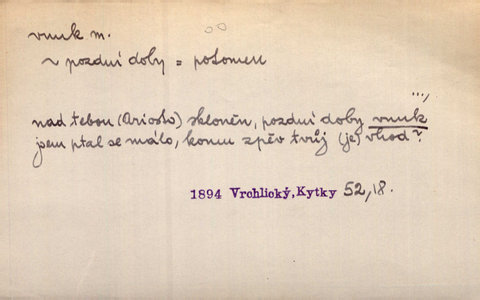 vnuk m.
~ pozdní doby = potomek
...,
nad tebou (Ariosto) skloněn, pozdní doby vnuk
jsem ptal se málo, komu zpěv tvůj (je) vhod?
1894 Vrchlický,Kytky 52,18.